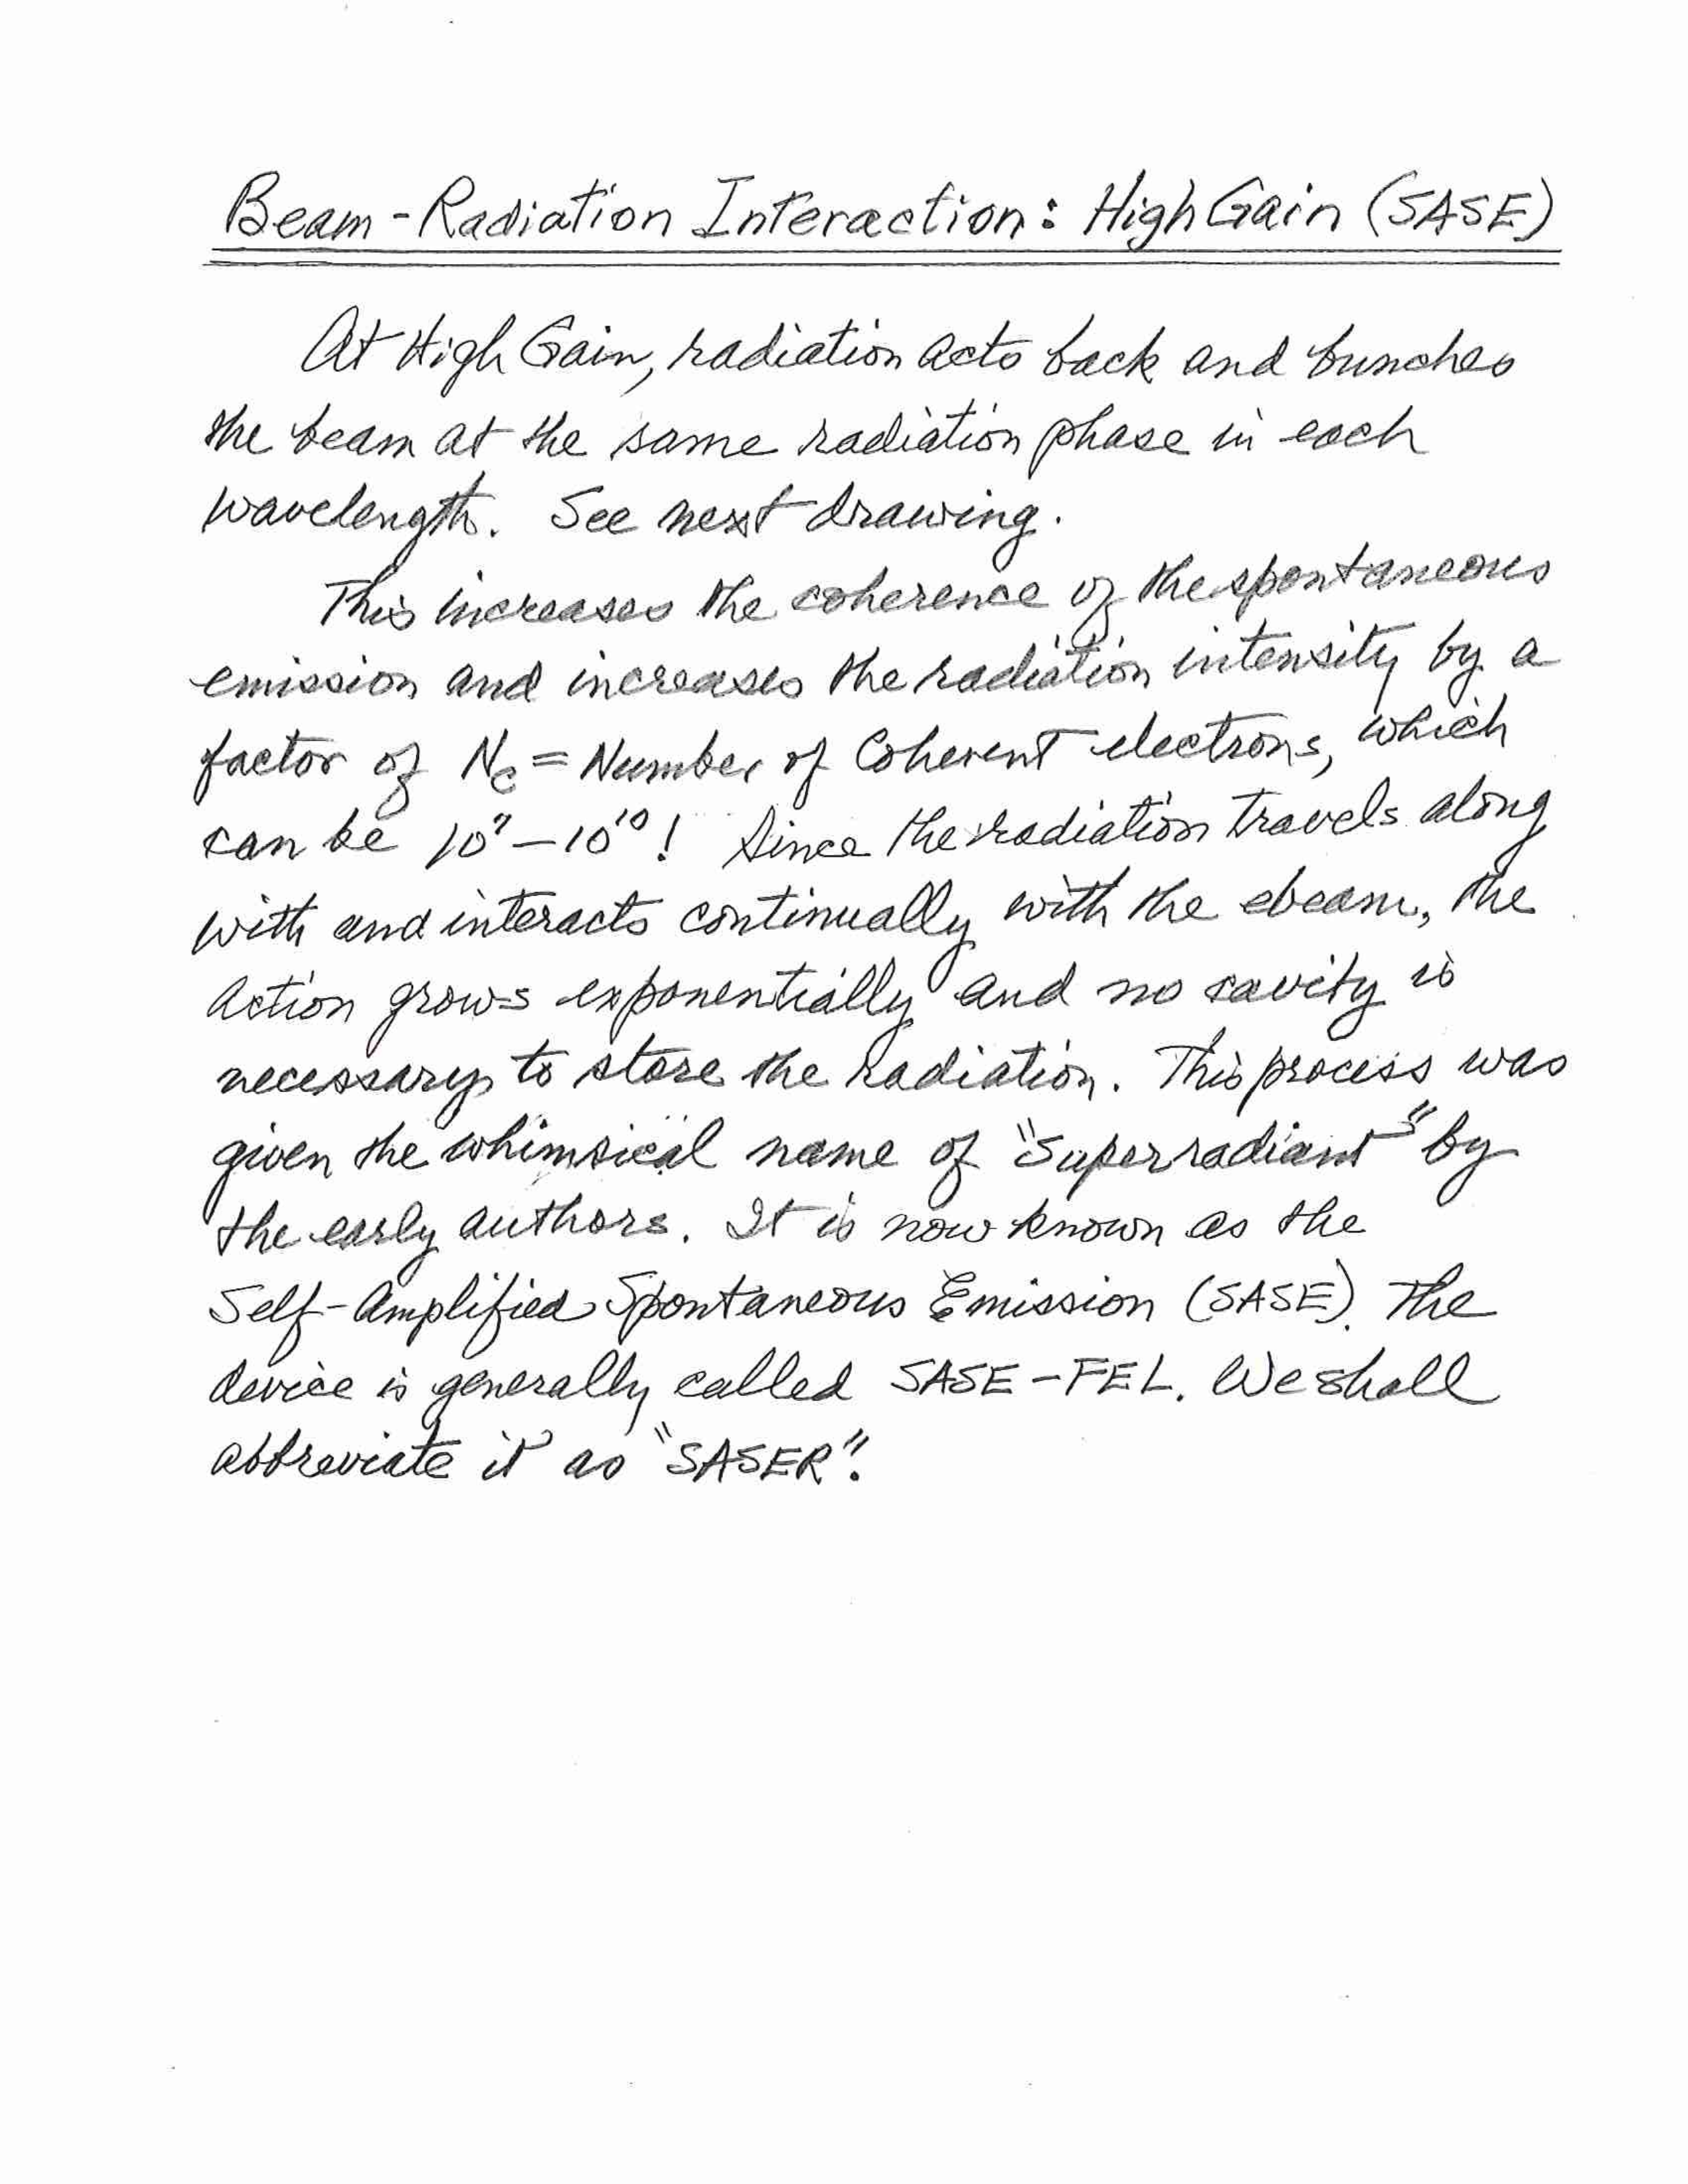 Beam-Radiation Interaction: High Gain (SASE)
At High Gain, radiation acts back and bunches
the beam at the same radiation phase in each
wavelength. See next drawing.
This increases the coherence of the spontaneous
emission and increases the radiation intensity by a
factor of Nc = Number of Coherent electrons, which
can be – 10¹⁰! Since the radiation travels along
with and interacts continually with the ebeam, the
action grows exponentially and no cavity is
necessary to store the radiation. This process was
given the whimsical name of "Superradiant" by
the early authors. It is now known as the
Self-Amplified Spontaneous Emission (SASE). The
device is generally called SASE-FEL. We shall
abbreviate it as "SASER".